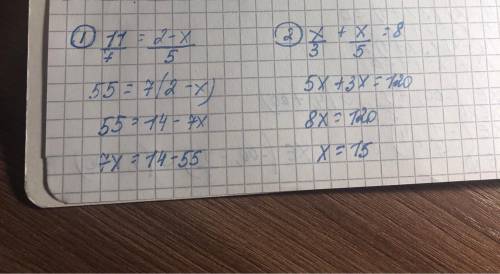 ① 11/7 = 2-x/5
55 = 7(2-x)
55 = 14-7x
7x = 14-55
② x/3 + x/5 = 8
5x + 3x = 120
8x = 120
x = 15